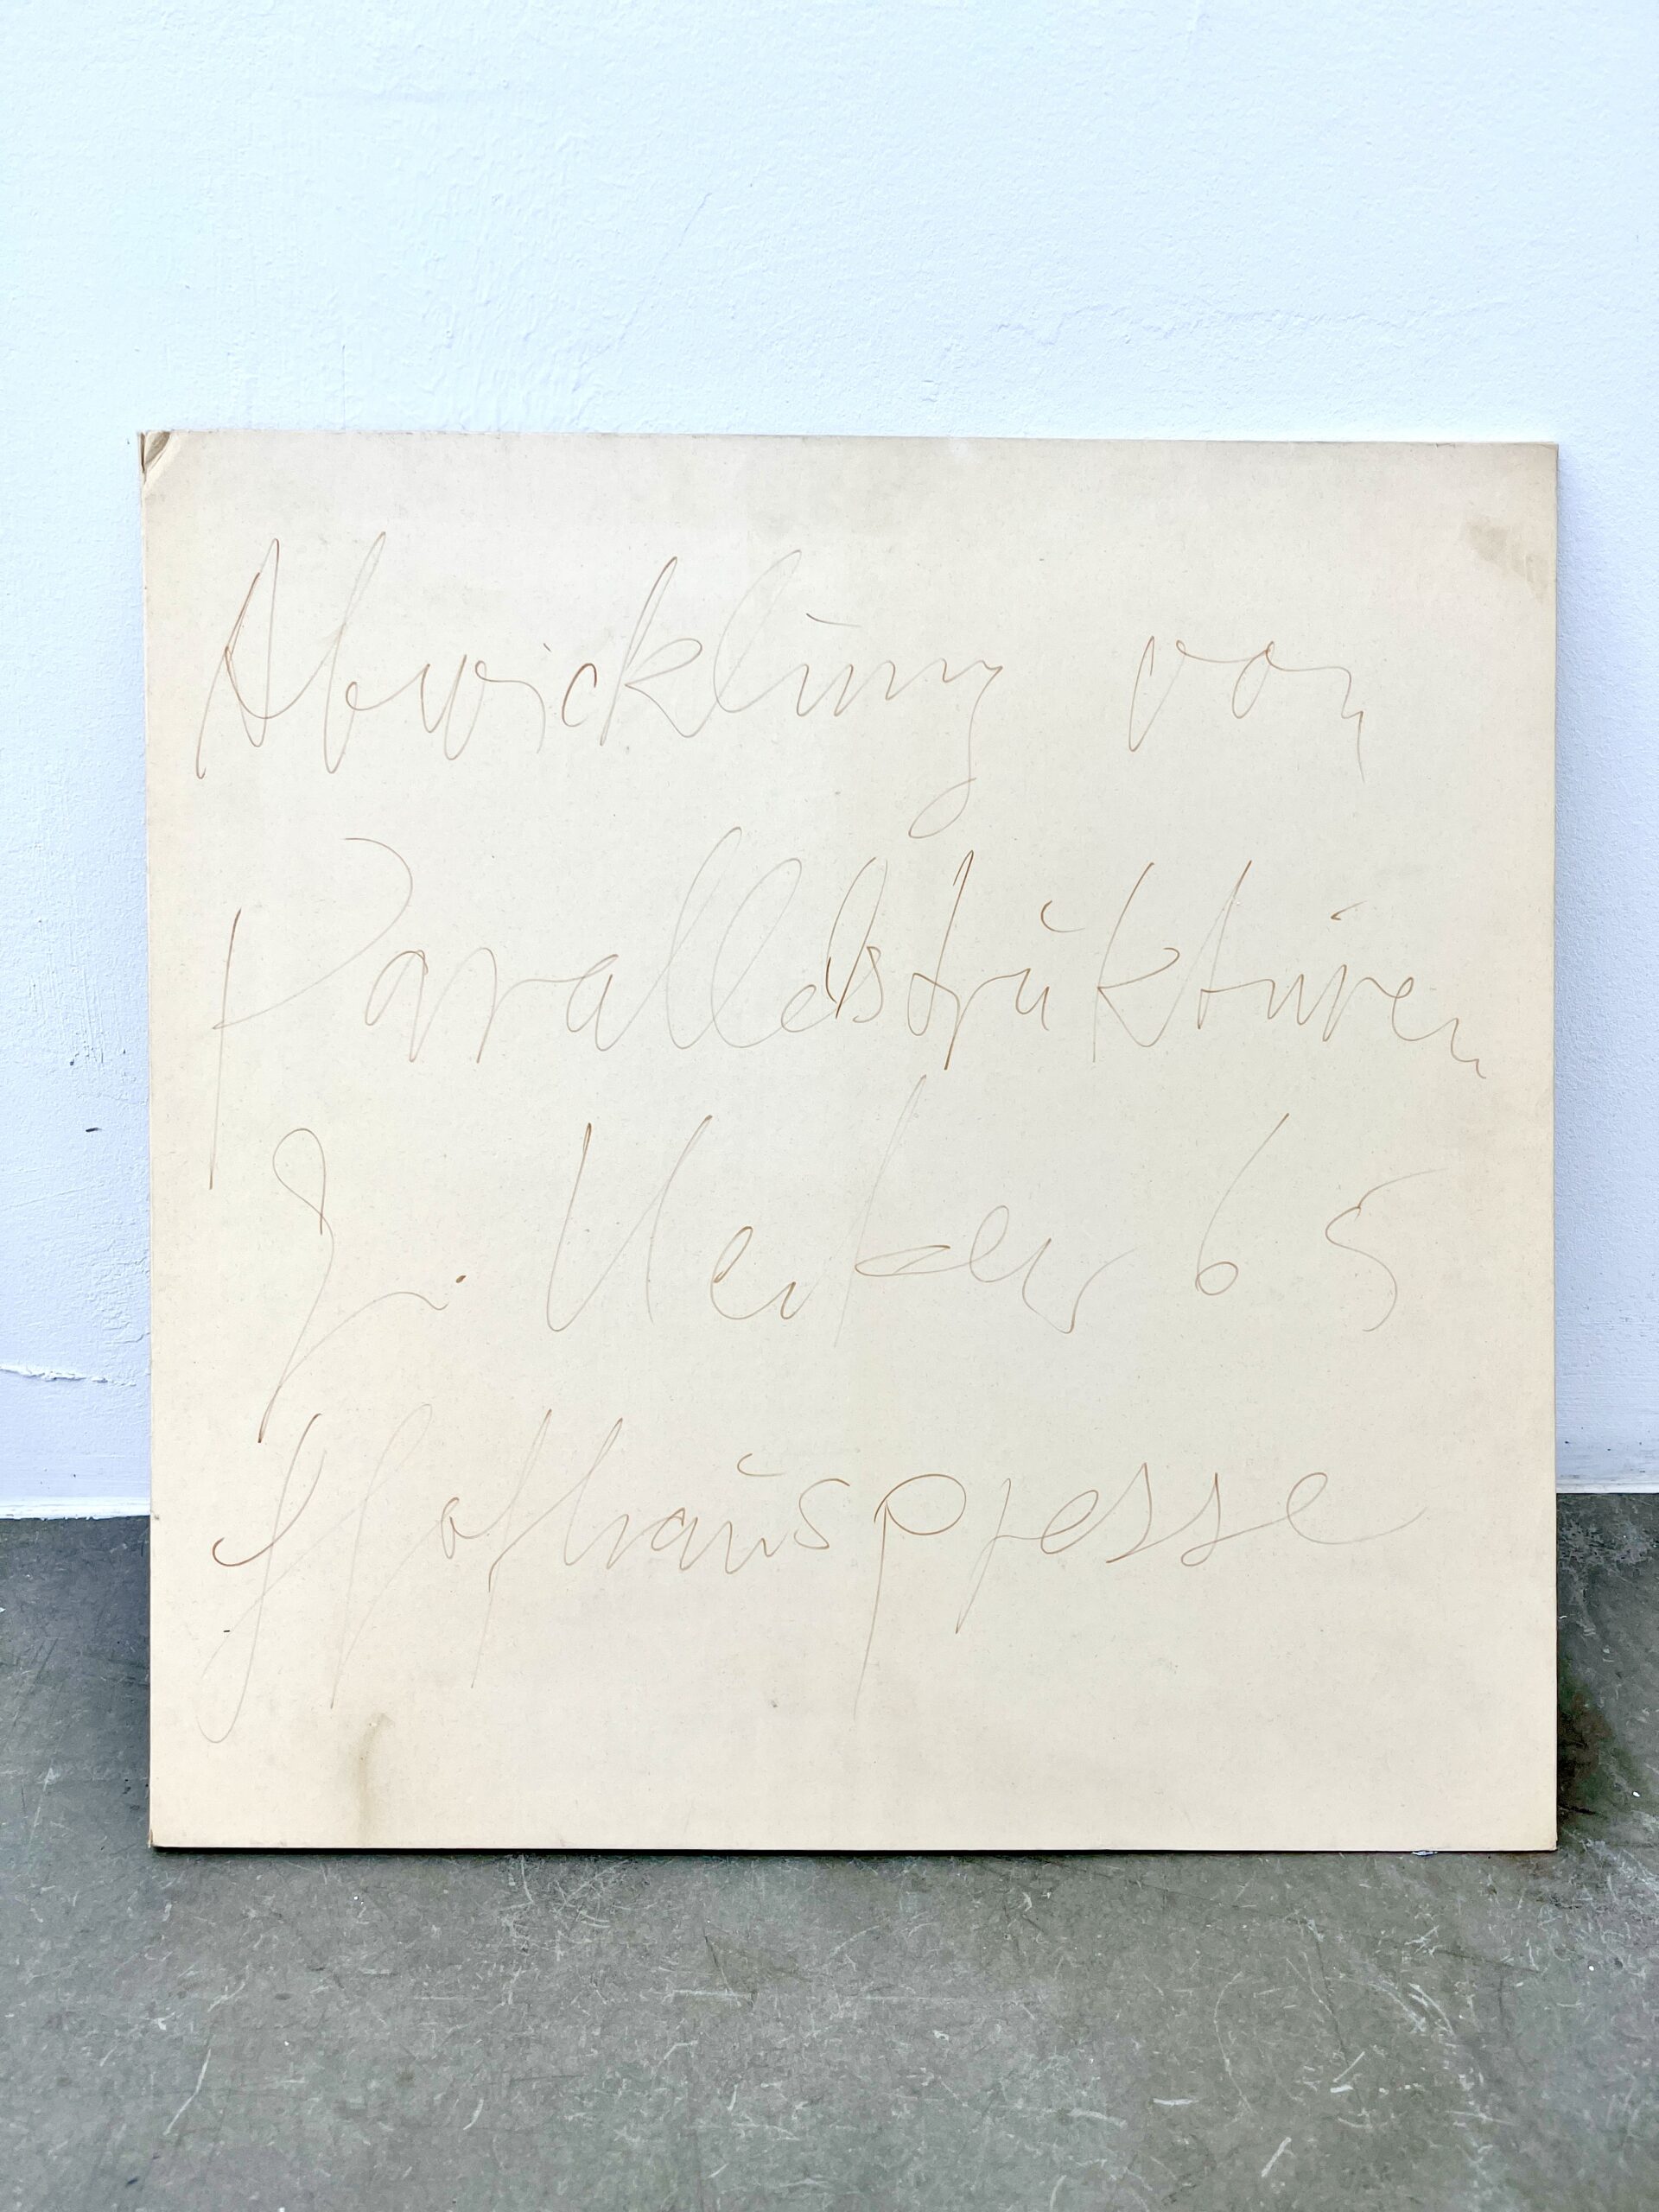 Abwicklung von
Parallelstrukturen
G. Uecker 65
Hofhauspresse